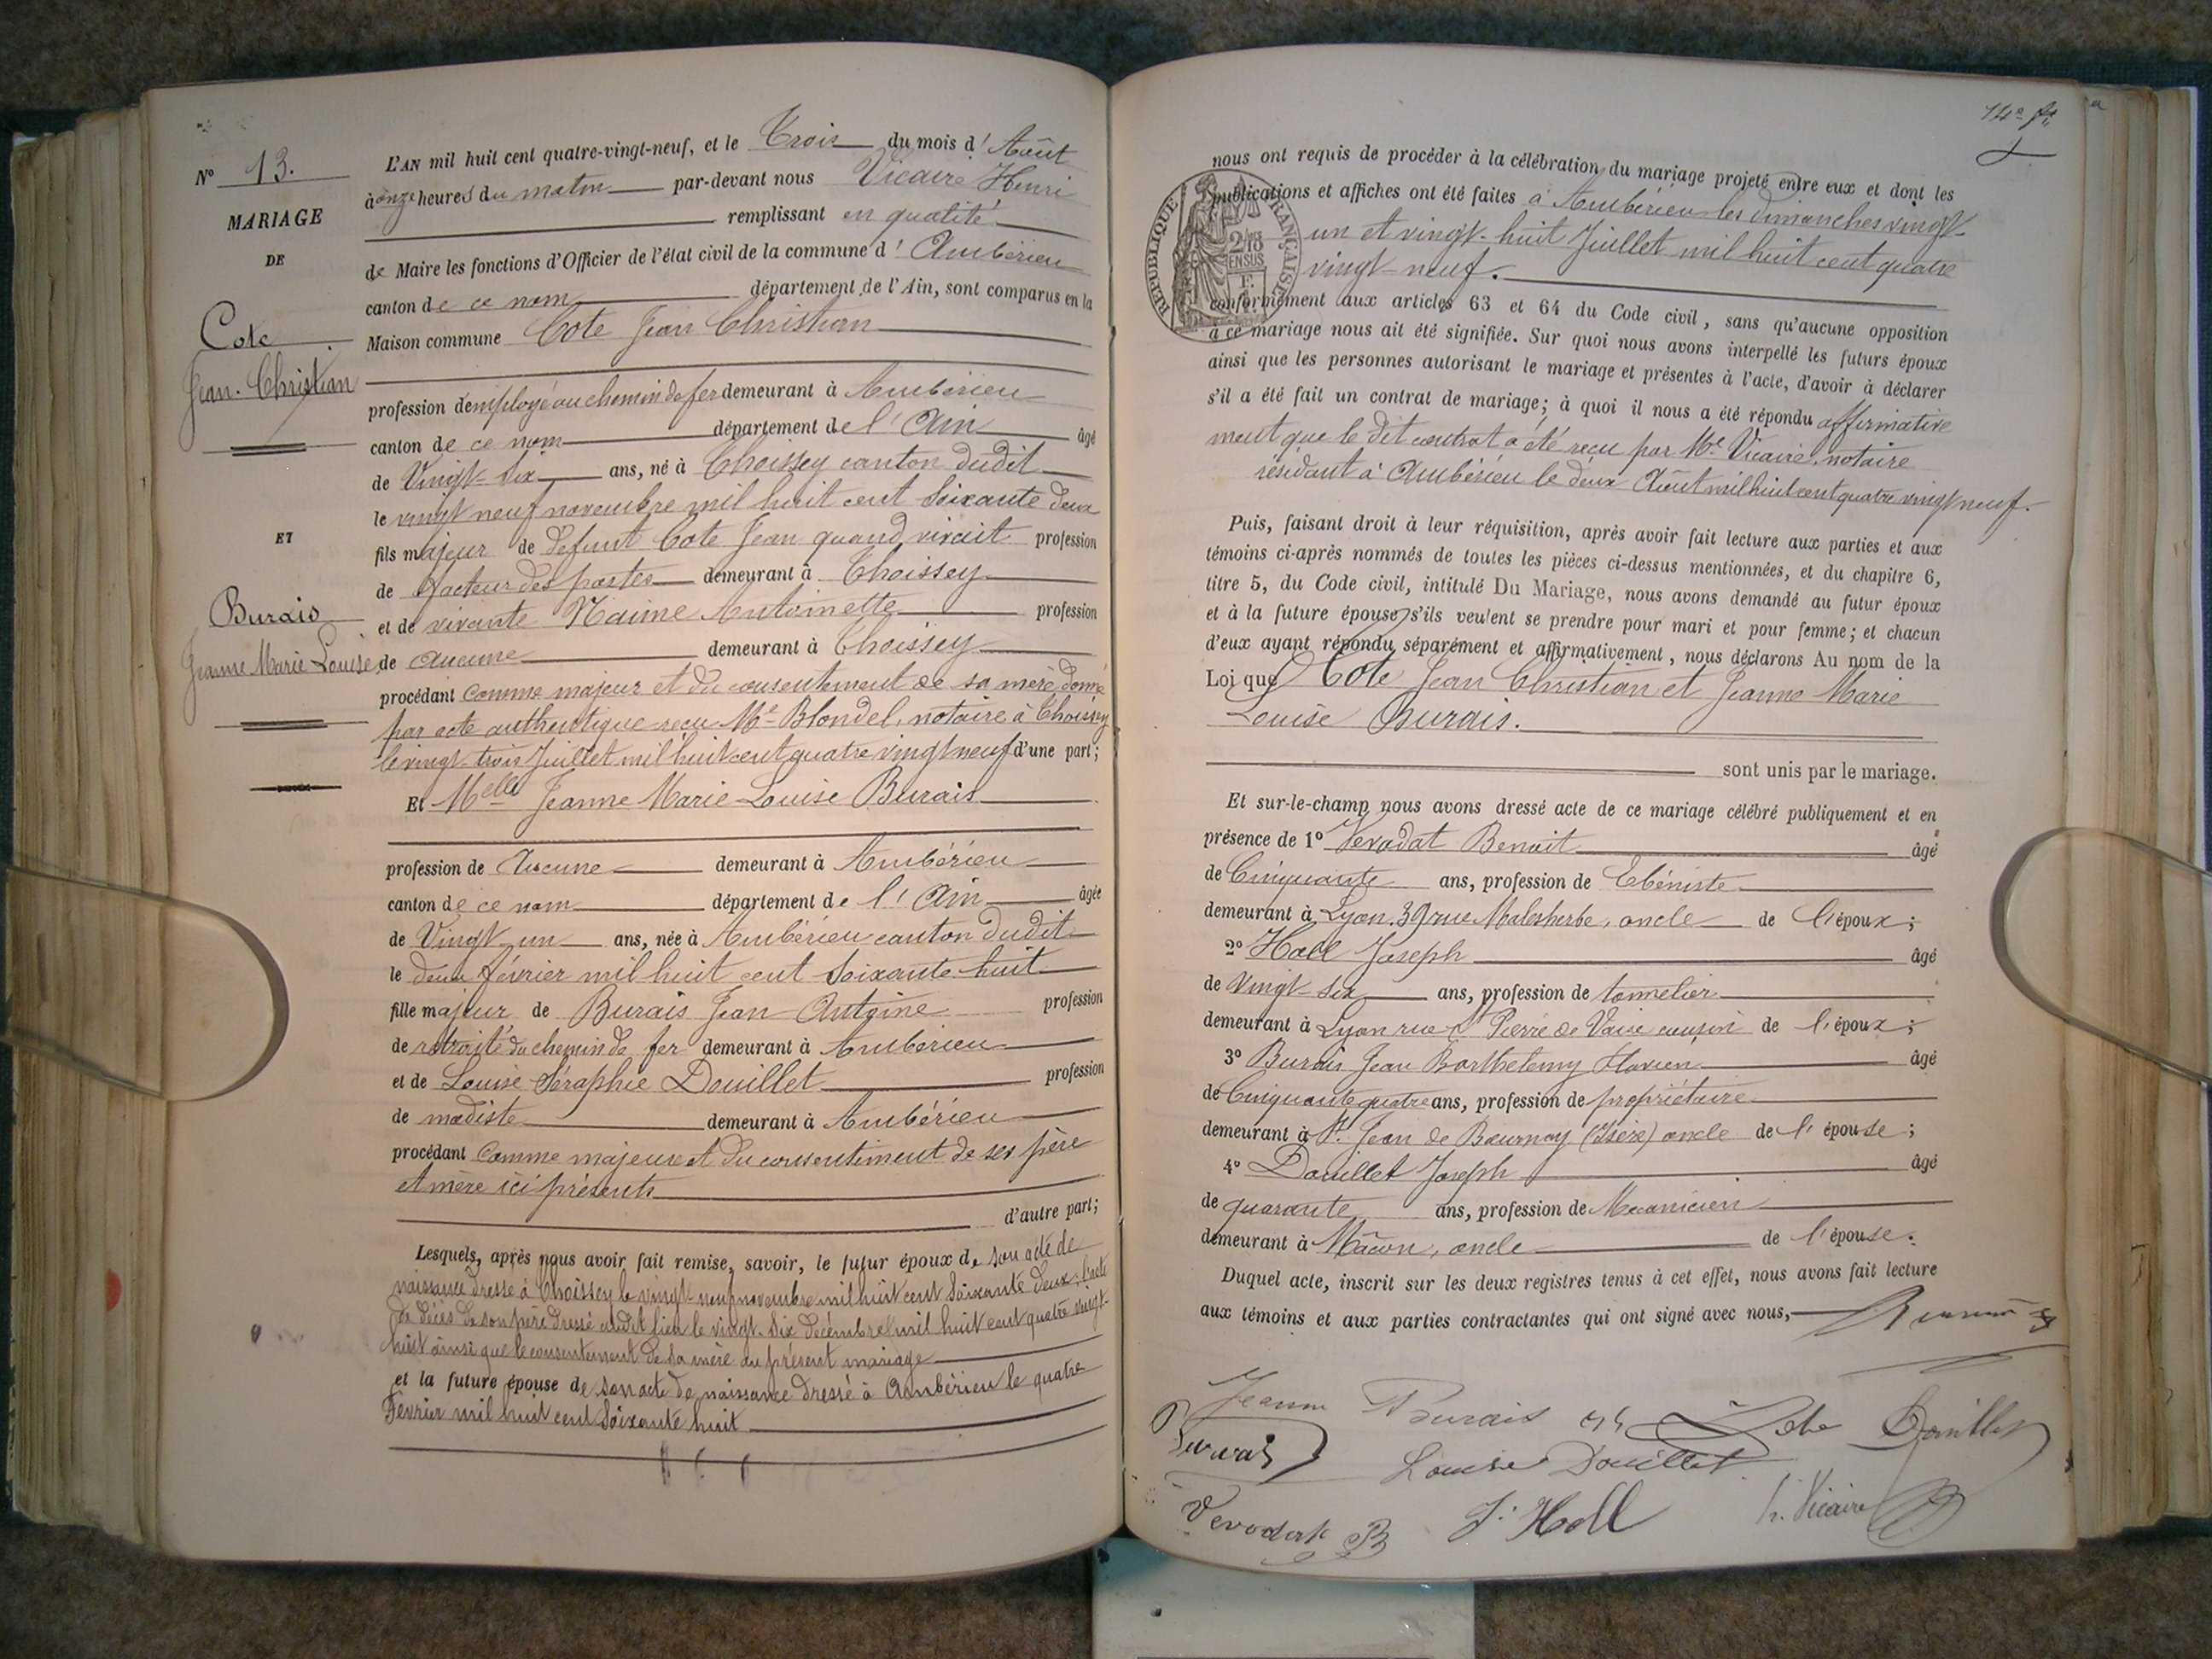 N° 13.
MARIAGE
DE
Cote
Jean. Christian
ET
Burais
Jeanne Marie Louise
L'AN mil huit cent quatre-vingt-neuf, et le Trois du mois d'Août
à onze heures du matin par-devant nous Vicaire Henri
remplissant en qualité
de Maire les fonctions d'Officier de l'état civil de la commune d'Ambérieu
canton de ce nom département de l'Ain, sont comparus en la
Maison commune Cote Jean Christian
profession d'employé au chemin de fer demeurant à Ambérieu
canton de ce nom département de l'Ain âgé
de Vingt-six ans, né à Thoissey canton dudit
le vingt neuf novembre mil huit cent soixante deux
fils majeur de défunt Cote Jean quand vivait profession
de facteur des postes demeurant à Thoissey
et de vivante Naime Antoinette profession
de aucune demeurant à Thoissey
procédant comme majeur et du consentement de sa mère donné
par acte authentique reçu Me Blondel, notaire à Thoissey
le vingt-trois Juillet mil huit cent quatre vingt neuf d'une part;
Et Melle Jeanne Marie Louise Burais
profession de Aucune demeurant à Ambérieu
canton de ce nom département de l'Ain âgée
de Vingt-un ans, née à Ambérieu canton dudit
le deux février mil huit cent soixante huit
fille majeur de Burais Jean Antoine profession
de retraité du chemin de fer demeurant à Ambérieu
et de Louise Séraphie Douillet profession
de modiste demeurant à Ambérieu
procédant comme majeure et du consentement de ses père
et mère ici présents
d'autre part;
Lesquels, après nous avoir fait remise, savoir, le futur époux de son acte de
naissance dressé à Thoissey le vingt neuf novembre mil huit cent soixante deux, l'acte
de décès de son père dressé audit lieu le vingt-six décembre mil huit cent quatre vingt-
huit ainsi que le consentement de sa mère au présent mariage
et la future épouse de son acte de naissance dressé à Ambérieu le quatre
Février mil huit cent soixante huit
14e ft
nous ont requis de procéder à la célébration du mariage projeté entre eux et dont les
publications et affiches ont été faites à Ambérieu les dimanches vingt-
un et vingt-huit Juillet mil huit cent quatre
vingt-neuf.
RÉPUBLIQUE FRANÇAISE
conformément aux articles 63 et 64 du Code civil, sans qu'aucune opposition
à ce mariage nous ait été signifiée. Sur quoi nous avons interpellé les futurs époux
ainsi que les personnes autorisant le mariage et présentes à l'acte, d'avoir à déclarer
s'il a été fait un contrat de mariage; à quoi il nous a été répondu affirmative
ment que le dit contrat a été reçu par Me Vicaire, notaire
résidant à Ambérieu le deux Août mil huit cent quatre vingt neuf.
Puis, faisant droit à leur réquisition, après avoir fait lecture aux parties et aux
témoins ci-après nommés de toutes les pièces ci-dessus mentionnées, et du chapitre 6,
titre 5, du Code civil, intitulé Du Mariage, nous avons demandé au futur époux
et à la future épouse s'ils veulent se prendre pour mari et pour femme; et chacun
d'eux ayant répondu séparément et affirmativement, nous déclarons Au nom de la
Loi que Cote Jean Christian et Jeanne Marie
Louise Burais.
sont unis par le mariage.
Et sur-le-champ nous avons dressé acte de ce mariage célébré publiquement et en
présence de 1° Vevodat Benoit âgé
de Cinquante ans, profession de Ebéniste
demeurant à Lyon. 39 rue Malesherbe, oncle de l'époux;
2° Holl Joseph âgé
de Vingt-six ans, profession de tonnelier
demeurant à Lyon rue St Pierre de Vaise cousin de l'époux;
3° Burais Jean Barthelemy Flavien âgé
de Cinquante quatre ans, profession de propriétaire
demeurant à St. Jean de Bournay (Isère) oncle de l'épouse;
4° Douillet Joseph âgé
de quarante ans, profession de Mécanicien
demeurant à Mâcon, oncle de l'épouse.
Duquel acte, inscrit sur les deux registres tenus à cet effet, nous avons fait lecture
aux témoins et aux parties contractantes qui ont signé avec nous,
Jeanne Burais Cote Douillet
Burais Louise Douillet
Vevodat B J. Holl h. Vicaire